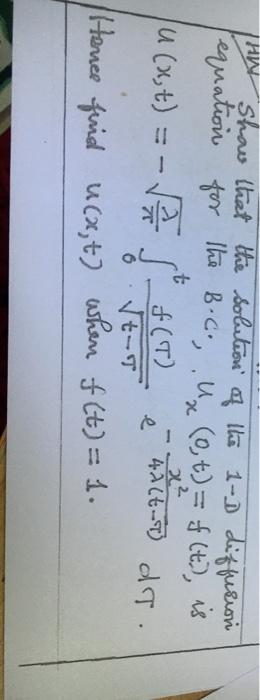 HW Show that the solution of the 1-D diffusion
equation for the B.C., u_x (0,t) = f(t), is
u(x,t) = - √(λ/π) ∫_0^t f(τ)/√(t-τ) e^(-x²/4λ(t-τ)) dτ.
Hence find u(x,t) when f(t) = 1.